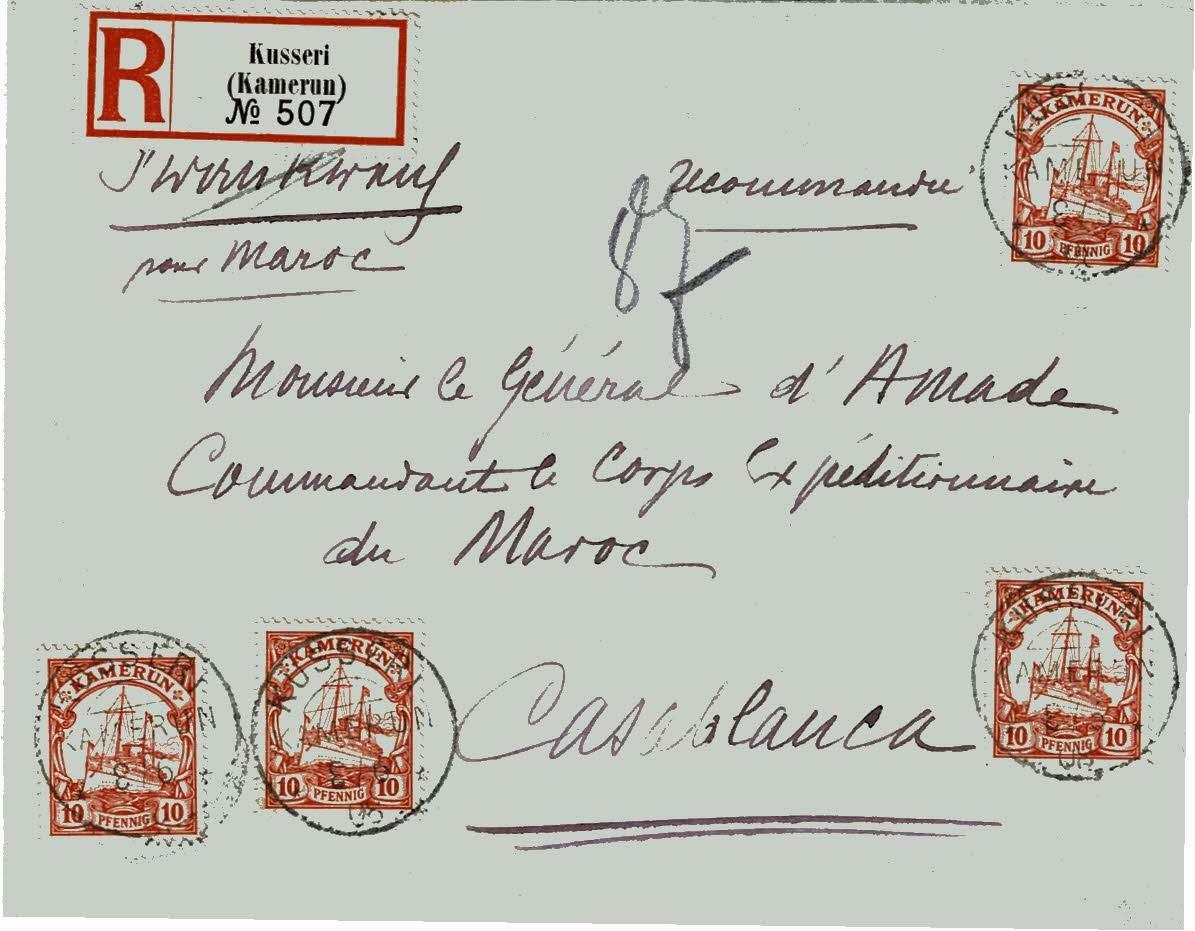 R
Kusseri
(Kamerun)
№ 507
recommandée
pour Maroc
Monsieur le Général d'Amade
Commandant le Corps Expéditionnaire
du Maroc
Casablanca
KAMERUN
10 PFENNIG 10
KUSSERI
KAMERUN
KAMERUN
10 PFENNIG 10
KUSSERI
KAMERUN
KAMERUN
10 PFENNIG 10
KUSSERI
KAMERUN
KAMERUN
10 PFENNIG 10
KUSSERI
KAMERUN